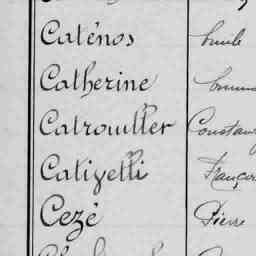 Caténos Emile
Catherine
Catrouller Constant
Catizelli François
Cezé Pierre